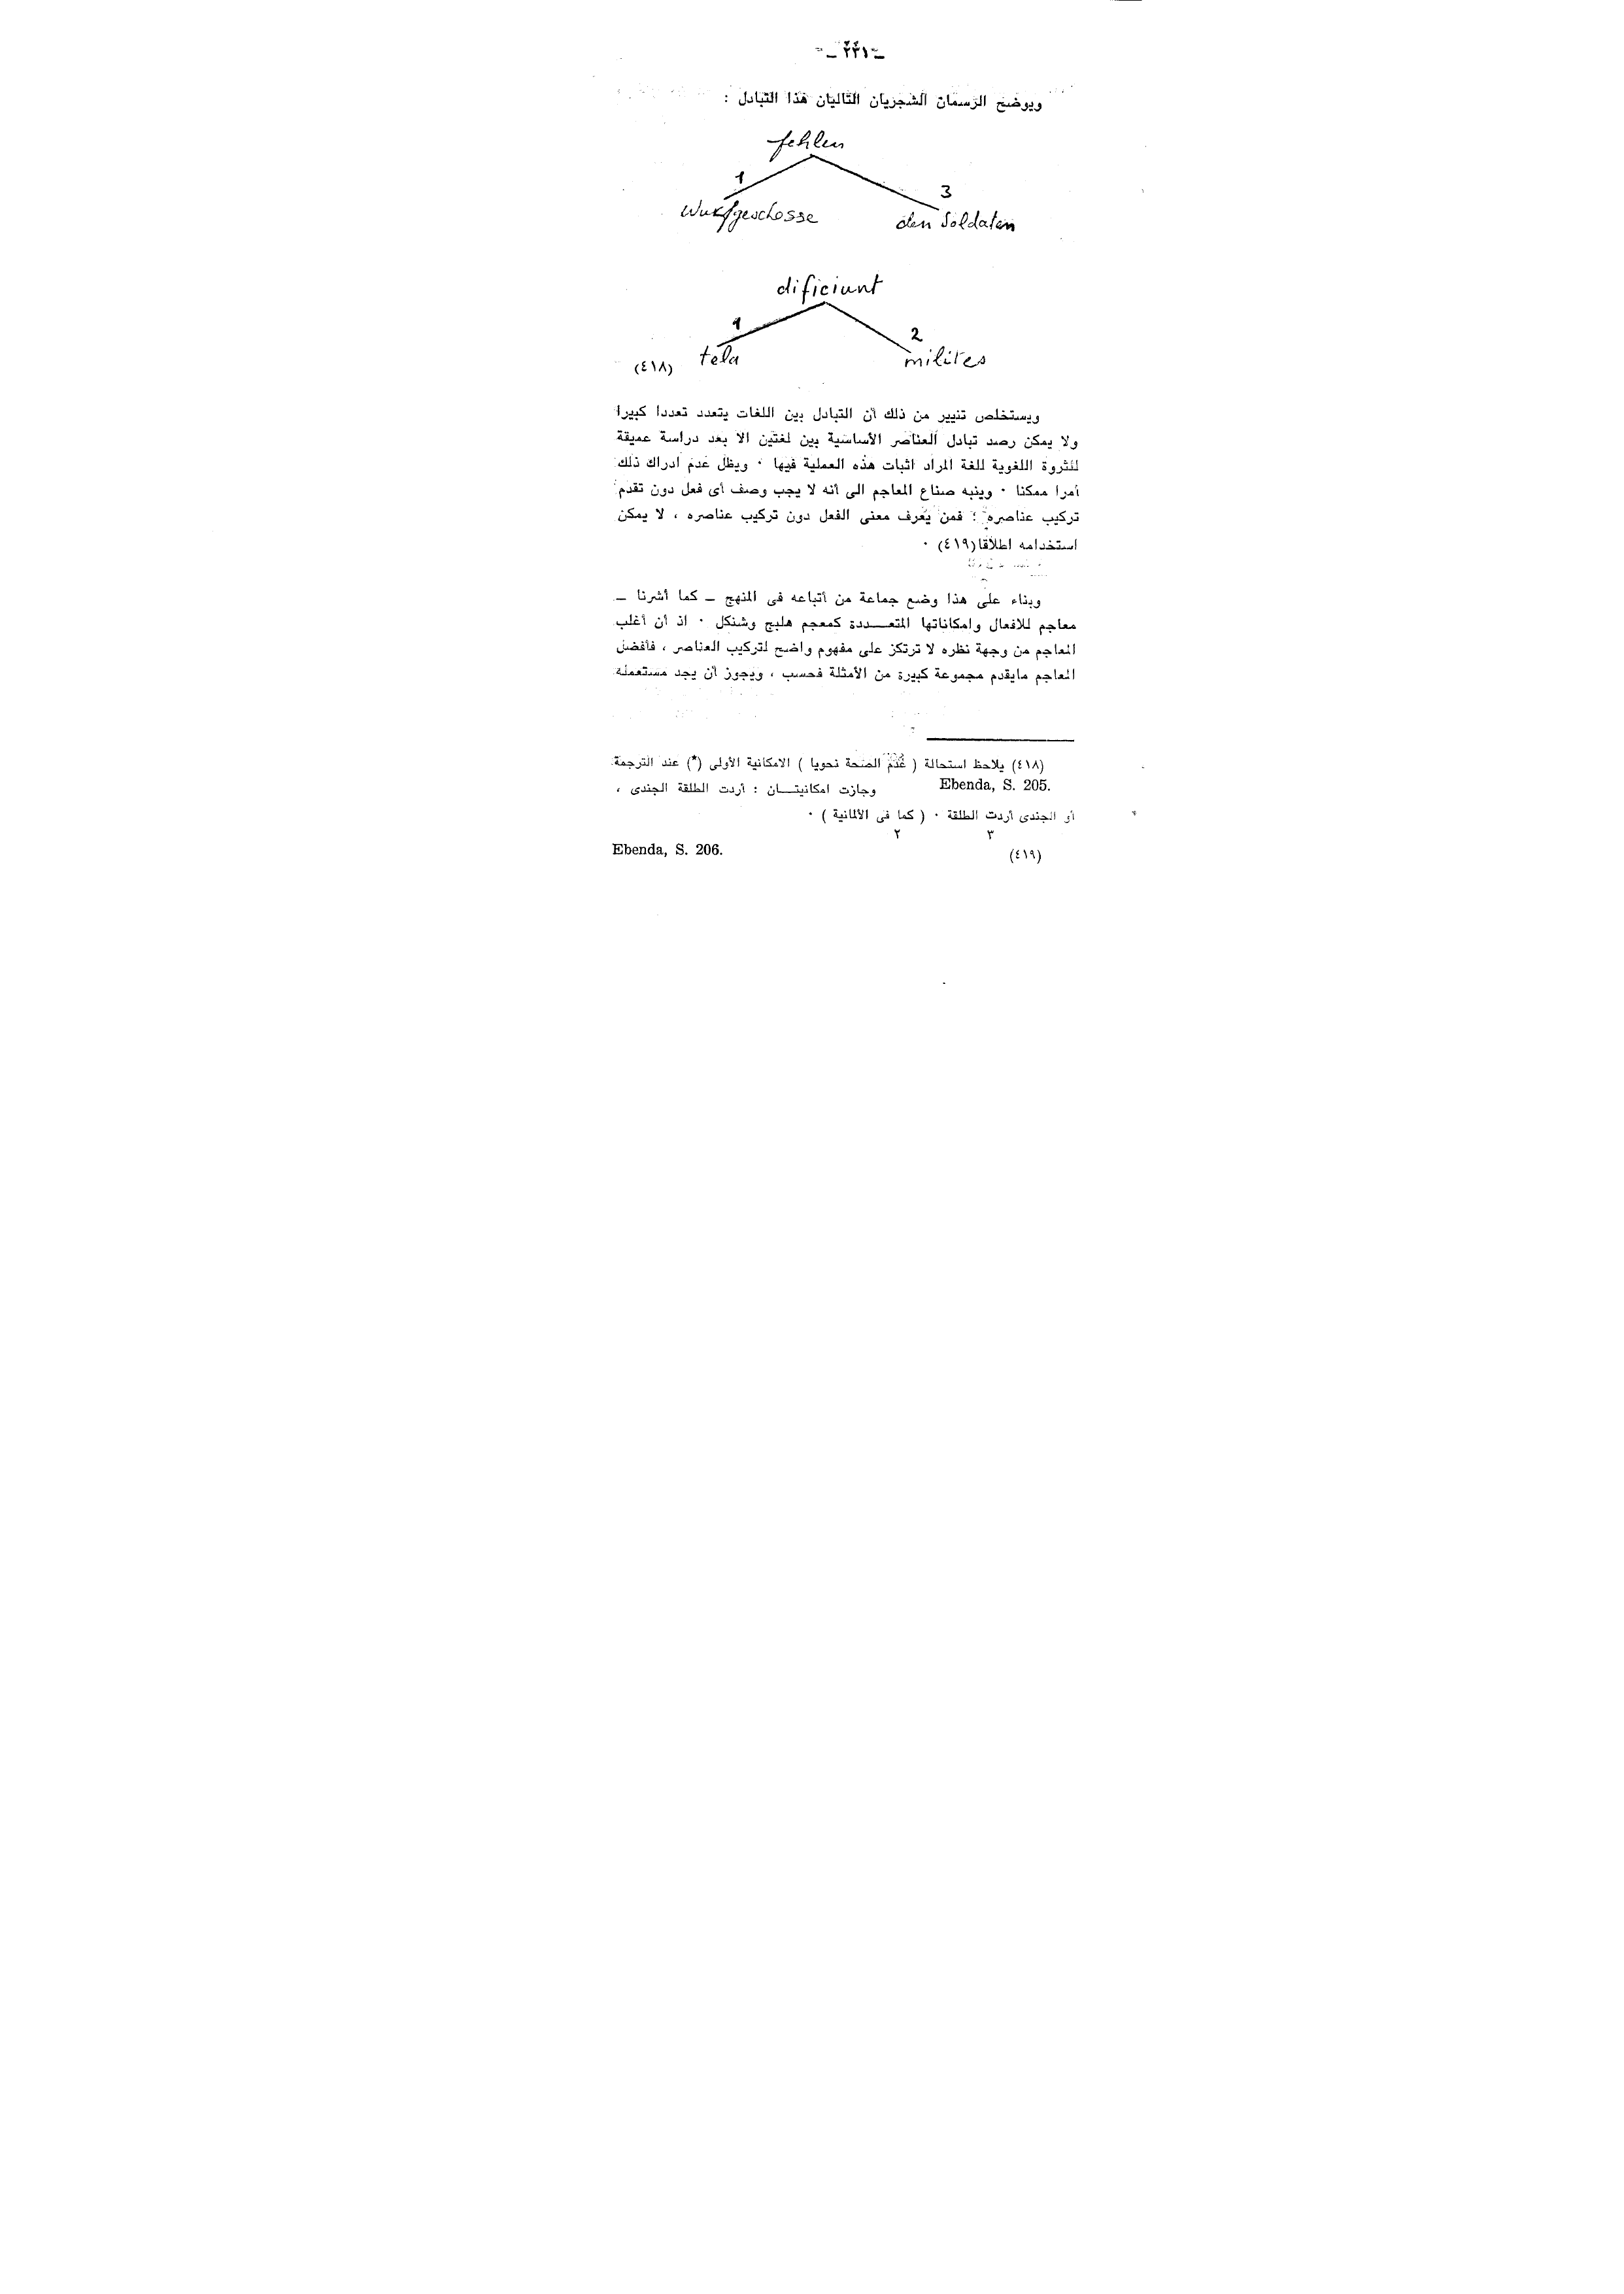 ـ ٢٢١ ـ
ويوضح الرسمان الشجريان التاليان هذا التبادل :
fehlen
1 3
Wurfgeschosse den Soldaten
dificiunt
1 2
tela milites
(٤١٨)
ويستخلص تنيير من ذلك أن التبادل بين اللغات يتعدد تعددا كبيرا
ولا يمكن رصد تبادل العناصر الأساسية بين لغتين الا بعد دراسة عميقة
للثروة اللغوية للغة المراد اثبات هذه العملية فيها ٠ ويظل عدم ادراك ذلك
أمرا ممكنا ٠ وينبه صناع المعاجم الى أنه لا يجب وصف أى فعل دون تقدم
تركيب عناصره ؛ فمن يعرف معنى الفعل دون تركيب عناصره ، لا يمكن
استخدامه اطلاقا(٤١٩) ٠
وبناء على هذا وضع جماعة من أتباعه فى المنهج ـ كما أشرنا ـ
معاجم للافعال وامكاناتها المتعـــددة كمعجم هلبج وشنكل ٠ اذ أن أغلب
المعاجم من وجهة نظره لا ترتكز على مفهوم واضح لتركيب العناصر ، فأفضل
المعاجم مايقدم مجموعة كبيرة من الأمثلة فحسب ، ويجوز أن يجد مستعمله
(٤١٨) يلاحظ استحالة ( عُدَم الصحة نحويا ) الامكانية الأولى (*) عند الترجمة
Ebenda, S. 205. وجازت امكانيتـــان : أردت الطلقة الجندى ،
أو الجندى أردت الطلقة ٠ ( كما فى الألمانية ) ٠
٣ ٢
(٤١٩) Ebenda, S. 206.